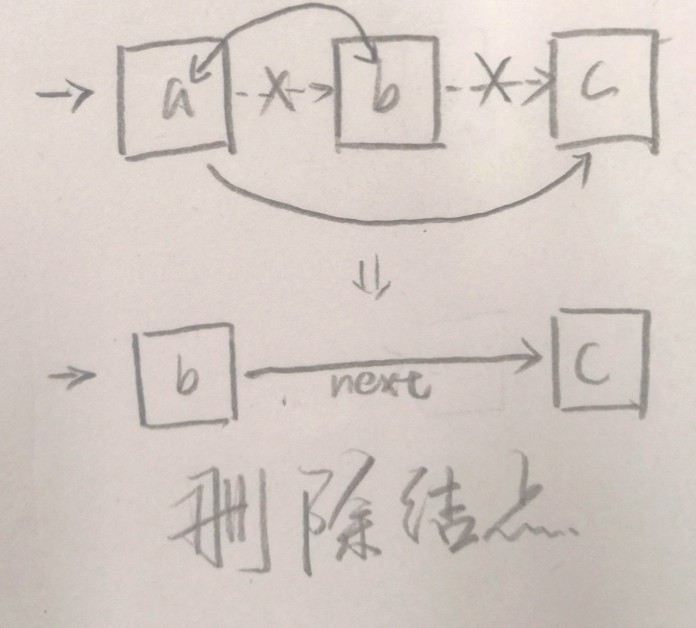 a b c
b next c
删除结点